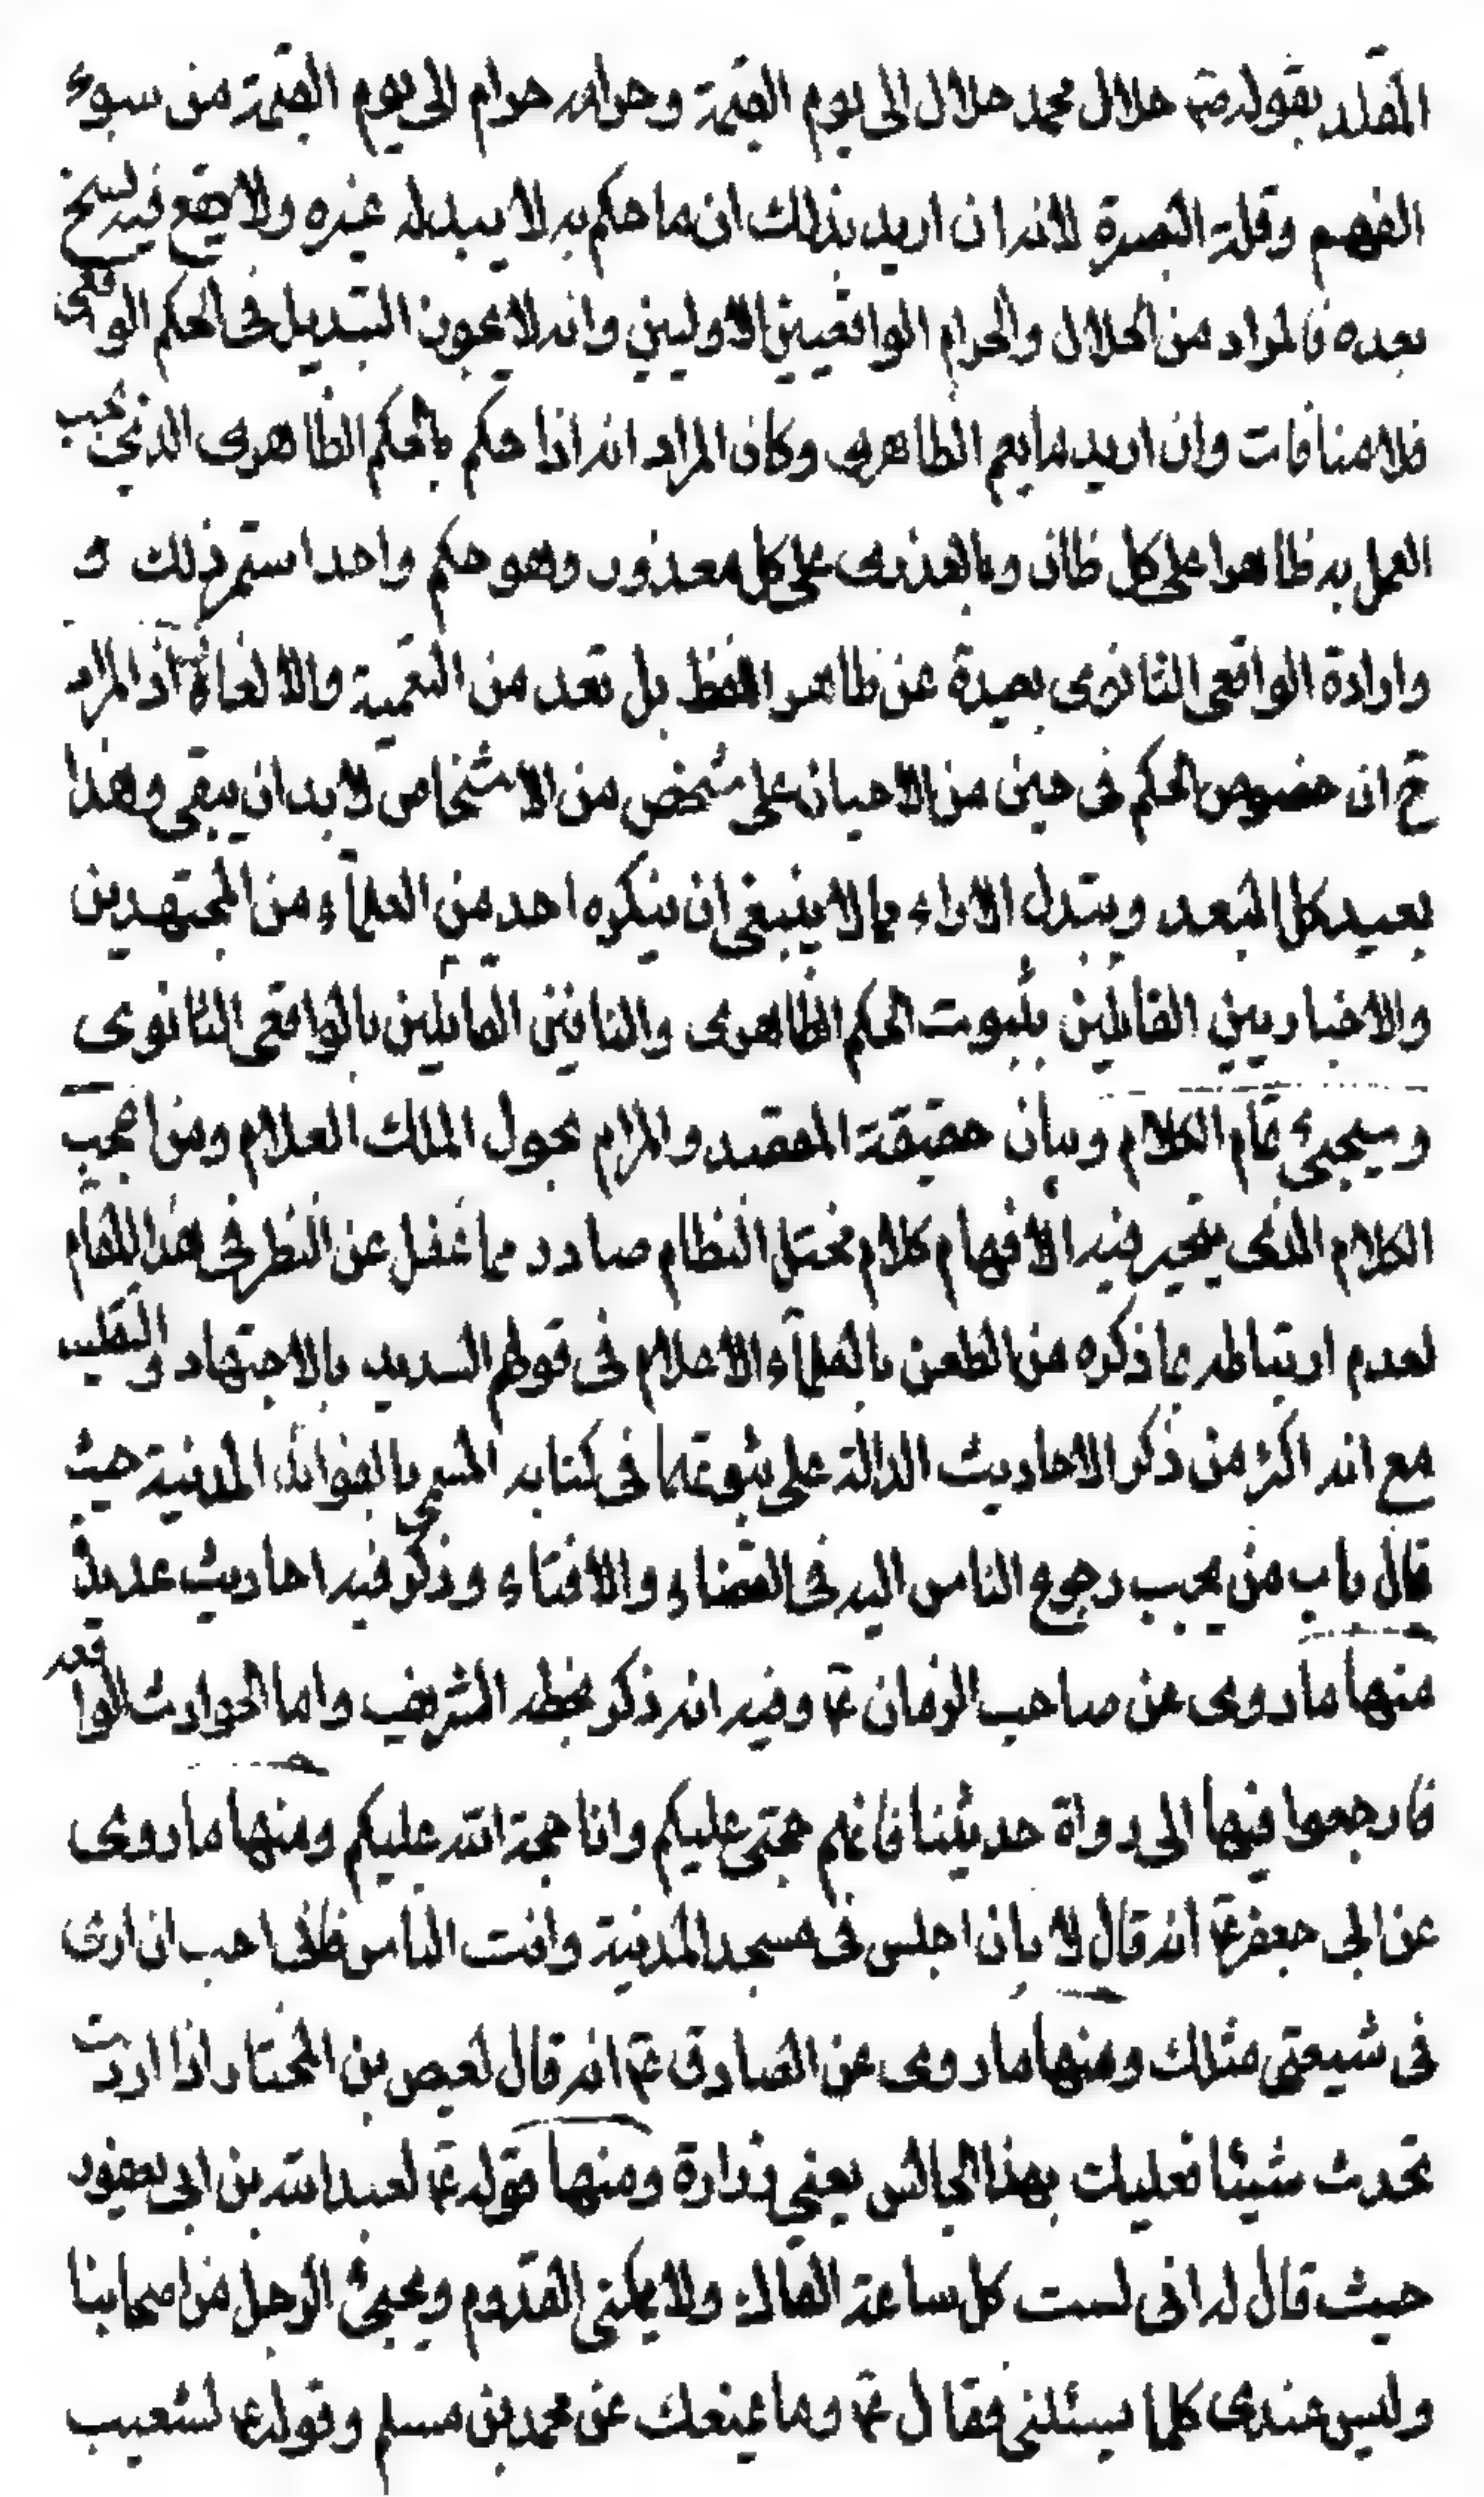 المقلد بقوله ص حلال محمد حلال الى يوم القيمة وحرامه حرام الى يوم القيمة من سوء
الفهم وقلة البصرة لانه ان اريد بذلك ان ما حكم به لا يبدله غيره ولا يقع فيه نسخ
بعده فالمراد من الحلال والحرام الواقعيين الاوليين وانه لا يجوز التبديل في الحكم الواقعى
فلا منافات وان اريد ما يعم الظاهرى وكان المراد انه اذا حكم بالحكم الظاهرى الذى يجب
العمل به ظاهرا على كل ظان وبالعذرى على كل معذور وهو حكم واحد استمر ذلك و
وارادة الواقعى الثانوى بعيدة عن ظاهر اللفظ بل تعد من التعمية والالغاز اذ المراد
ح ان خصوص الحكم فى حين من الاحيان على شخص من الاشخاص لا بد ان يبقى وهذا
بعيد كل البعد وتبدل الاراء مما لا ينبغى ان ينكره احد من العلماء من المجتهدين
والاخباريين القائلين بثبوت الحكم الظاهرى والنافين القائلين بالواقعى الثانوى
وسيجيئ تمام الكلام وبيان حقيقة المقصد والمرام بحول الملك العلام ومن اعجب
الكلام الذى يتحير فيه الافهام كلام مختل النظام صادر مما غفل عن النظر فى هذا المقام
لعدم ارتباطه بما ذكره من الطعن بالعلماء الاعلام فى قولهم السديد بالاجتهاد والتقليد
مع انه اكثر من ذكر الاحاديث الدالة على ثبوتهما فى كتابه المسمى بالفوائد المدنية حيث
قال باب من يجب رجوع الناس اليه فى القضاء والافتاء وذكر فيه احاديث عديدة
منها ما روى عن صاحب الزمان ع وفيه انه ذكر بخطه الشريف واما الحوادث الواقعه
فارجعوا فيها الى رواة حديثنا فانهم حجتى عليكم وانا حجة الله عليكم ومنها ما روى
عن ابى جعفر ع انه قال لابان اجلس فى مسجد المدينة وافت الناس فانى احب ان ارى
فى شيعتى مثلك ومنها ما روى عن الصادق ع انه قال لعيص بن المختار اذا اردت
تحدث شيئا فعليك بهذا الجالس يعنى زرارة ومنها قوله ع لعبد الله بن ابى يعفور
حيث قال له انى لست كل ساعة القاك ولا يمكننى القدوم ويجيئ الرجل من اصحابنا
وليس عندى كلما يسئلنى فقال ع وما يمنعك عن محمد بن مسلم وقوله ع لشعيب